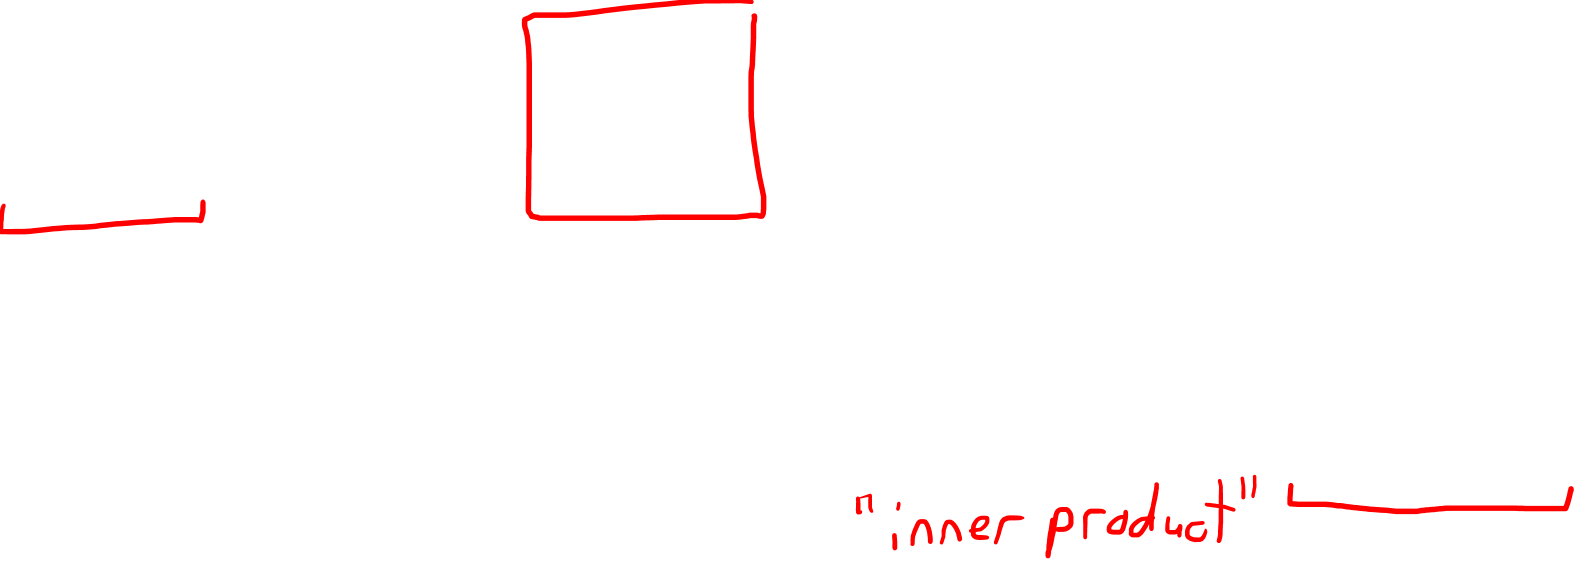 "inner product"